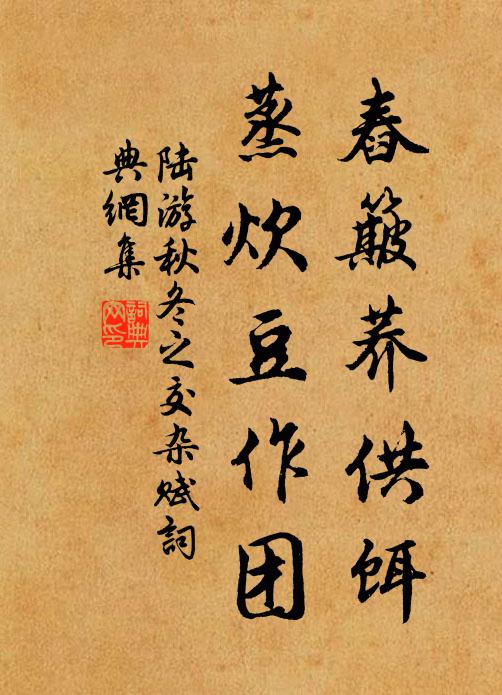 舂簸荞供饵
蒸炊豆作团
陆游秋冬之交杂赋词
典網集
詞典
网印